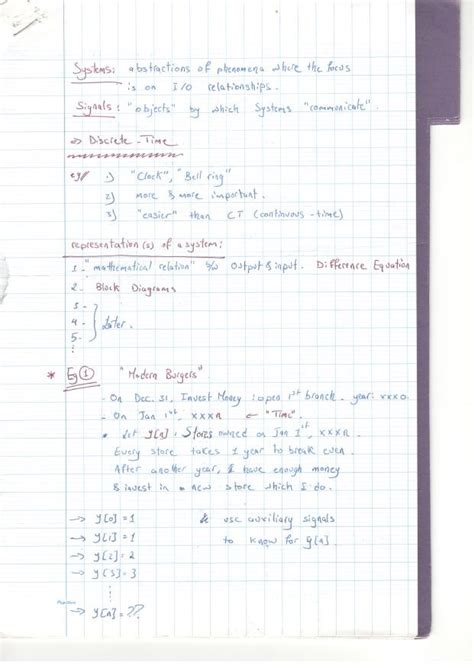 Systems: abstractions of phenomena where the focus
is on I/O relationships.
Signals: "objects" by which Systems "communicate".
=> Discrete-Time
eg// 1) "Clock", "Bell ring"
2) more & more important.
3) "easier" than CT (continuous-time)
representation(s) of a system:
1- "mathematical relation" b/w output & input. Difference Equation
2- Block Diagrams
3-
4- } Later.
5-
⋮
* Eg ① "Modern Burgers"
- On Dec. 31, Invest Money: open 1st branch. year: xxx0
- On Jan 1st, xxxn ← "Time".
• Let y[n] = Stores owned on Jan 1st, xxxn.
Every store takes 1 year to break even.
After another year, I have enough money
& invest in a new store which I do.
→ y[0] = 1 & use auxiliary signals
→ y[1] = 1 to know for y[n]
→ y[2] = 2
→ y[3] = 3
⋮
→ y[n] = ??